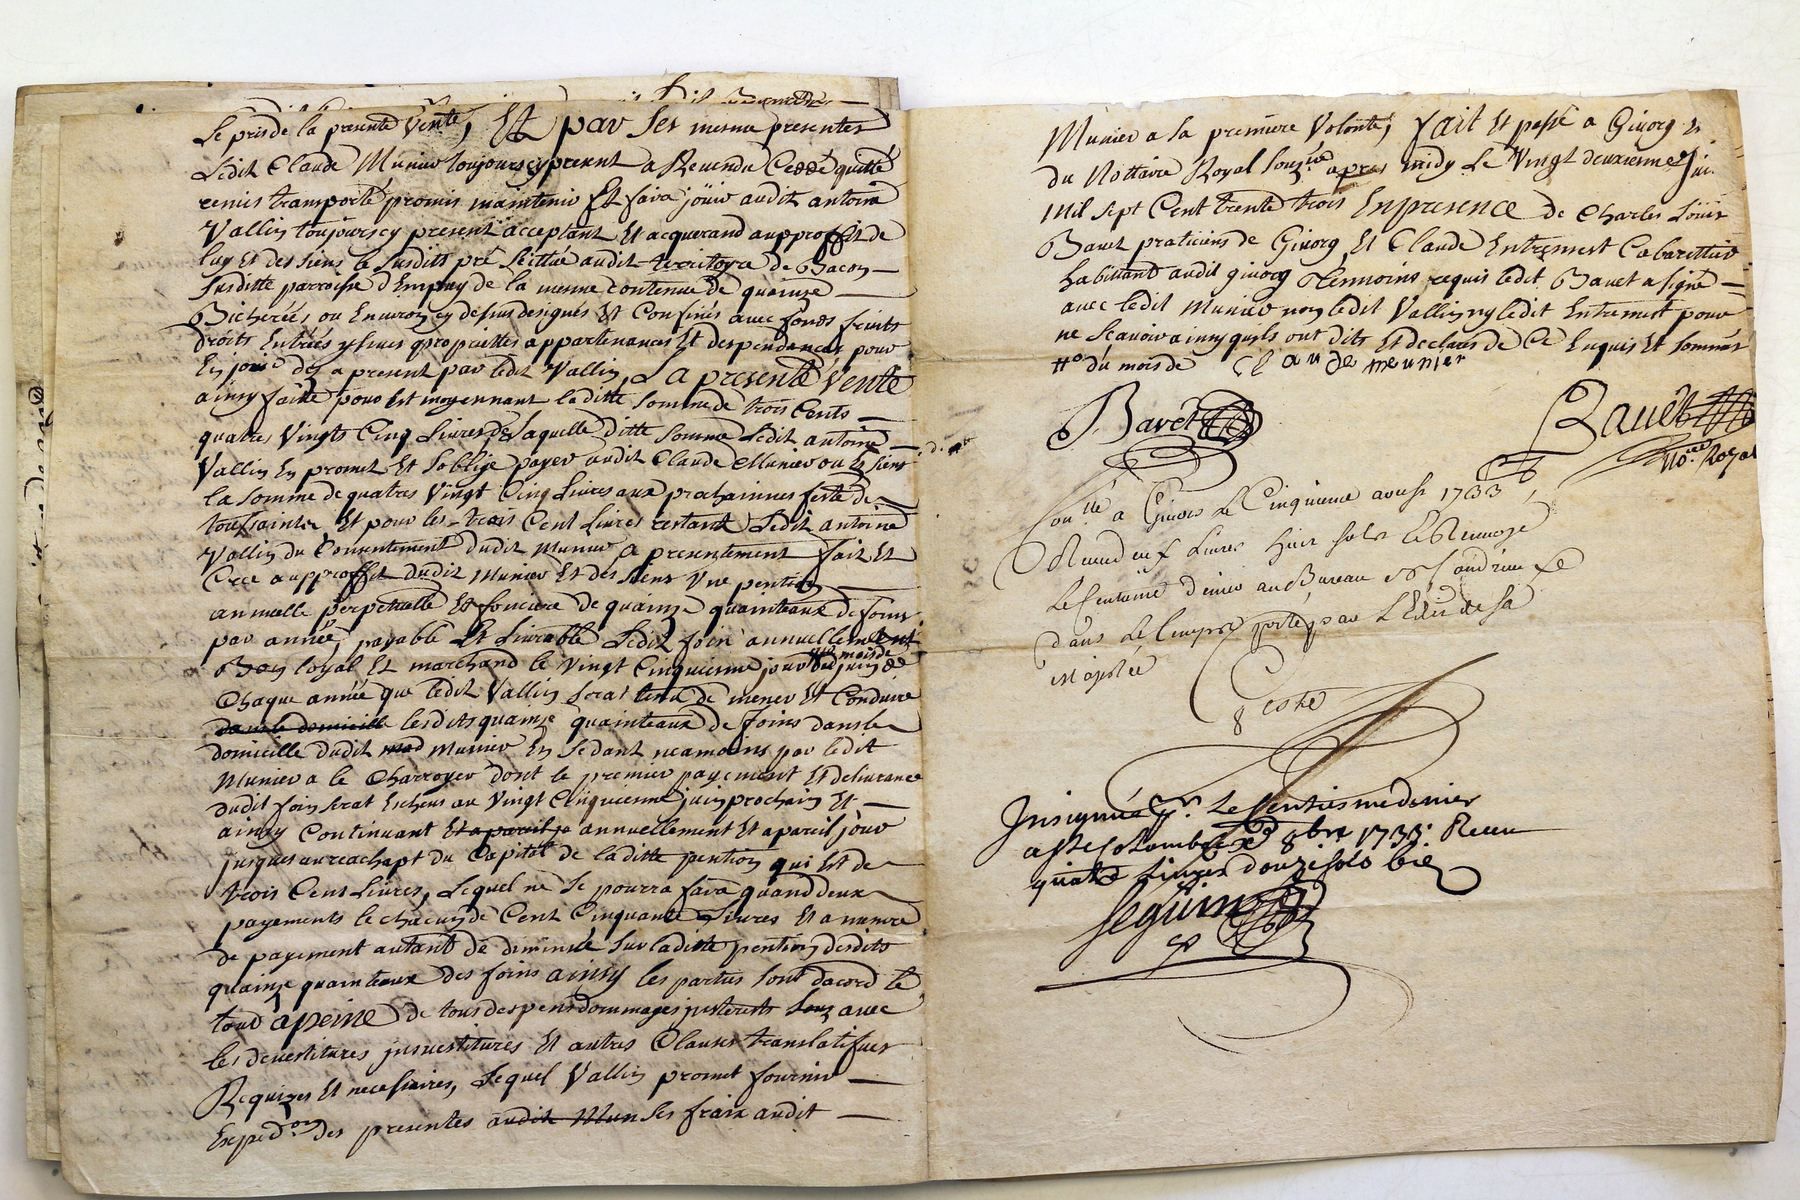 Le pris de la presente Vente, Et par Ses mesme presentes
Ledit Claude Munier toujours cy present a Revendu Ceddé quitté
remis transporté promis maintenir Et fara joüir audit antoine
Vallin toujours cy present acceptant Et acquerand au proffit de
luy Et des siens le Susdits pré Scittué audit territoire de Bacon
Susditte parroisse d'Empuy de la mesme contenue de quainze
Bicherées ou Environ cy dessus designés Et Confinés avec fonds fruits
droits Entrées ysües proprietés appartenances Et despendances pour
En joüir des a present par ledit Vallin, La presente Vente
ainsy faitte pour Et moyennant laditte Somme de trois Cents
quatres Vingts Cinq Livres De Laquelle ditte Somme Ledit antoine
Vallin En promet Et Soblige payer audit Claude Munier ou Es Siens
la Somme de quatres Vingt Cinq Livres aux prochainnes feste de
toussaintz Et pour les trois Cent Livres restant Ledit antoine
Vallin du Consentement dudit Munier a presentement fait Et
Cree au proffit dudit Munier Et des Siens Une pention
annuelle perpetuelle Et fonciere de quainze quainteaux de foins
par année, payable Et Livrable Ledit foin annuellement
Bon loyal Et marchand le Vingt Cinquienme jour du mois de juin de
Chaque année que ledit Vallin Serat tenu de mener Et Conduire
dans le domicille lesdits quainze quainteaux de foins dans le
domicille dudit mod Munier En Sedant neamoins par ledit
Munier a le Charroyer dont le premier payement Et delivrance
dudit foin Serat Escheus au Vingt Cinquienme juin prochain Et
ainsy Continuant Et apareil jo annuellement Et apareil jour
jusques au reachapt du Capital de laditte pention qui Est de
trois Cent Livres, Lequel ne Se pourra fara quand deux
payements le chacun de Cent Cinquante Livres Et a mesure
de payement autant de diminué Sur laditte pention desdits
quainze quainteaux des foins ainsy les parties Sont dacord le
tout apeine de tous despens dommages justerests Souz avec
les devestitures jnvestitures Et autres Clauses translatifves
Requizes Et necessaires, Lequel Vallin promet fournir
Exped.on des presentes audit Mun Ses fraix audit
Munier a Sa premiere Volonté, fait Et passé a Givorg Es
du Nottaire Royal Souz.né apres midy Le Vingt deuxienme Jui.
Mil Sept Cent trente trois En presence de Charles Loüis
Bavet praticiens de Givorg Et Claude Entremest Cabarettier
habittant audit givorg Temmoins requis ledit Bavet a signé
avec ledit Munier non ledit Vallin ny ledit Entremest pour
ne Scavoir ainsy quils ont dits Et declarés de Ce Enquis Et Sommés
du mois de Claude meunier
Bavet
Bauet
No.re Royal
Con.llé a Givors Le Cinquieme aoust 1733
Receu neuf Livres huit sols Et Renvoyé
Le Centieme denier au Bureau de
dans Le temps porté par L'Edit de Sa
Majestée
Coste
Insignué Le Centiesme denier
a Ste Colombe 8bre 1733. Receu
quatre Livres douze sols
Seguin